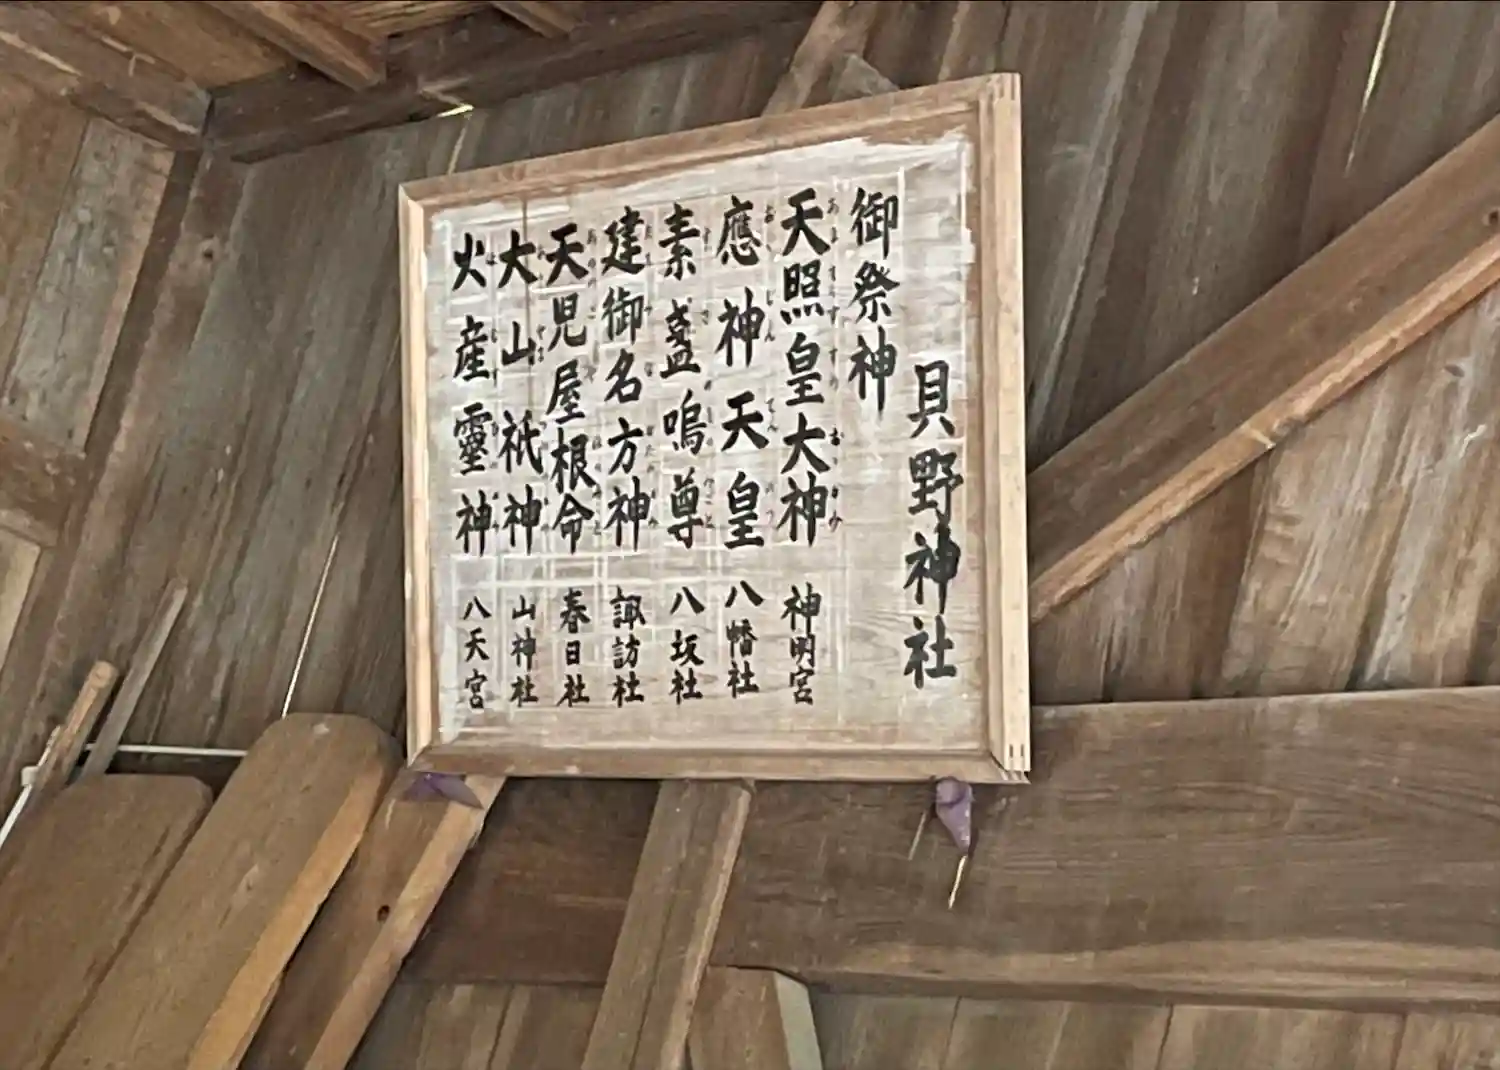 貝野神社
御祭神
天照皇大神 神明宮
應神天皇 八幡社
素盞嗚尊 八坂社
建御名方神 諏訪社
天児屋根命 春日社
大山祇神 山神社
火産霊神 八天宮